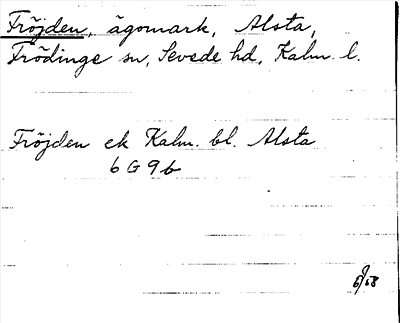 Fröjden, ägomark, Alsta,
Frödinge sn, Sevede hd, Kalm. l.
Fröjden ek Kalm. bl. Alsta
6 G 9 b